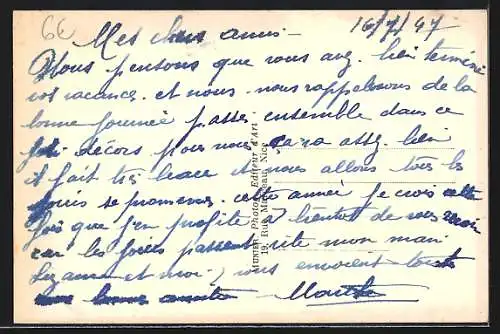 6E
16/7/47
Mes chers amis -
Nous pensons que vous avez bien terminé
vos vacances. et nous nous rappelerons de la
bonne journée passer ensemble dans ce
joli décors pour nous ça va assez bien
il fait très beau et nous allons tous les
jours se promener. cette année je crois cette
fois que j'en profite à bientot de vous revoir
car les jours passent vite mon mari
Suzanne et moi vous envoient tous
bonne amitié Marthe
MUNIER Photo Editeur d'Art
19, Rue Nice